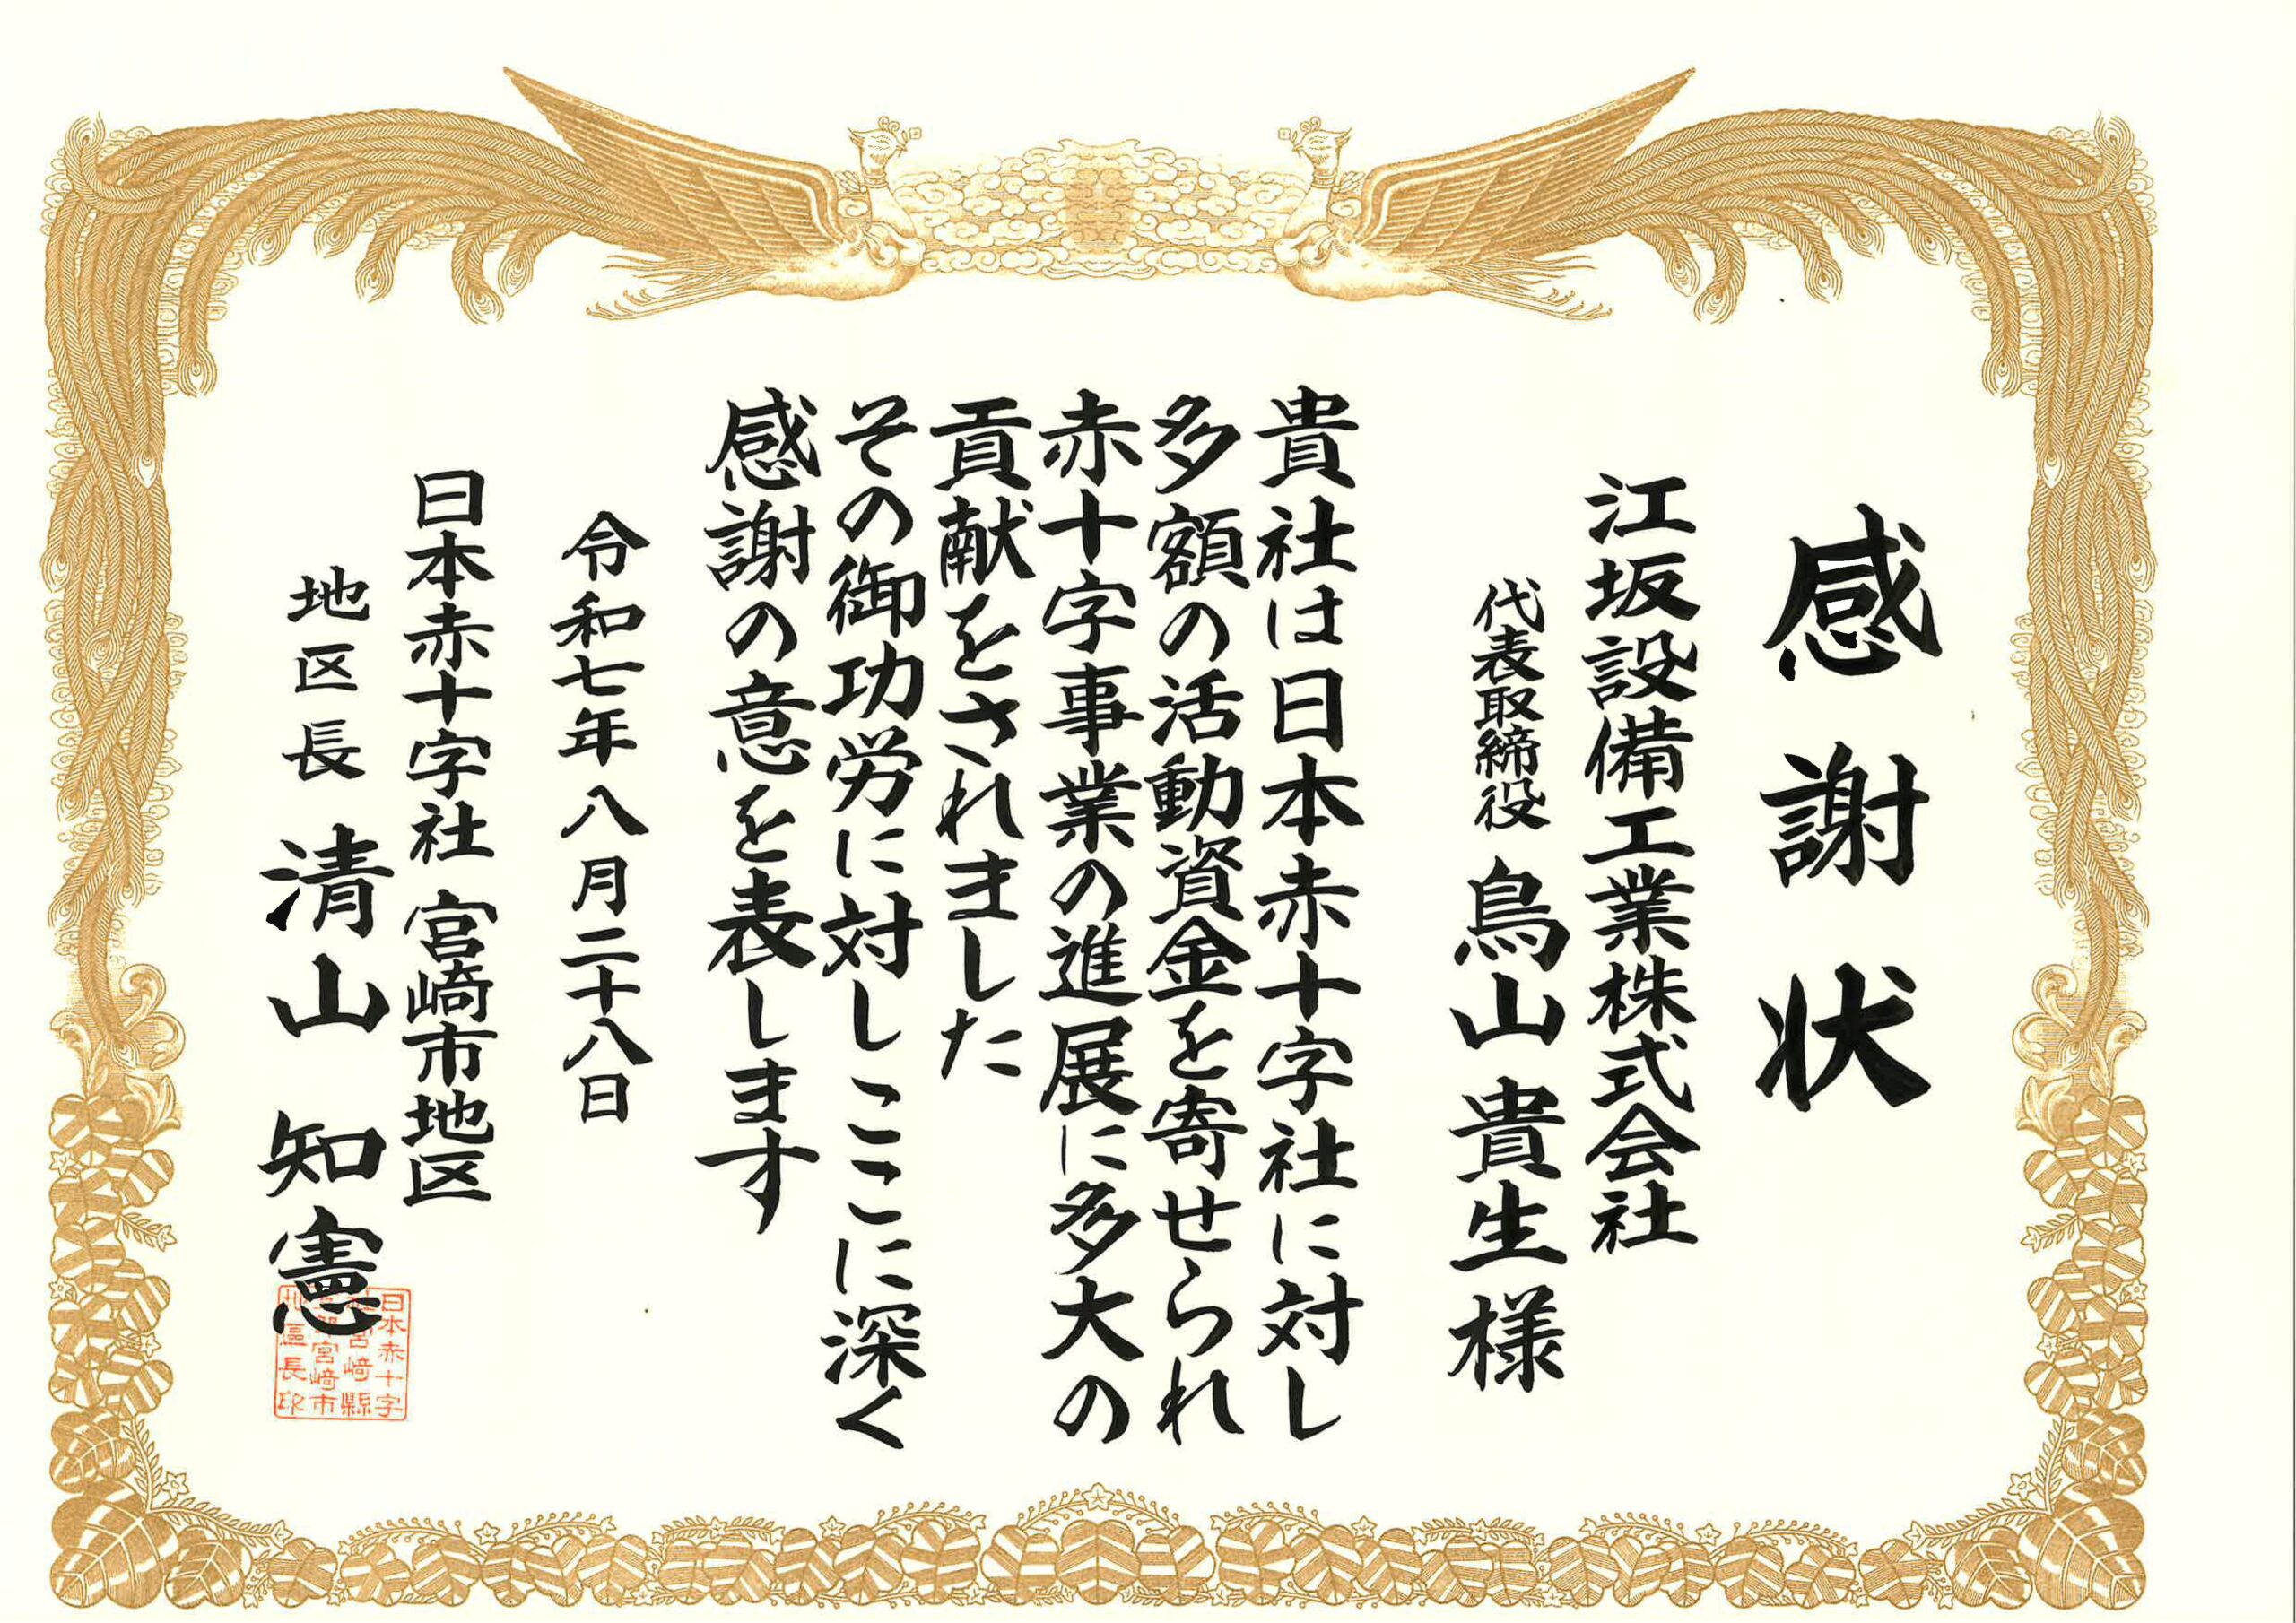 感謝状
江坂設備工業株式会社
代表取締役 鳥山貴生様
貴社は日本赤十字社に対し
多額の活動資金を寄せられ
赤十字事業の進展に多大の
貢献をされました
その御功労に対しここに深く
感謝の意を表します
令和七年八月二十八日
日本赤十字社 宮崎市地区
地区長 清山 知憲
日本赤十字
宮崎縣
宮崎市
區長印